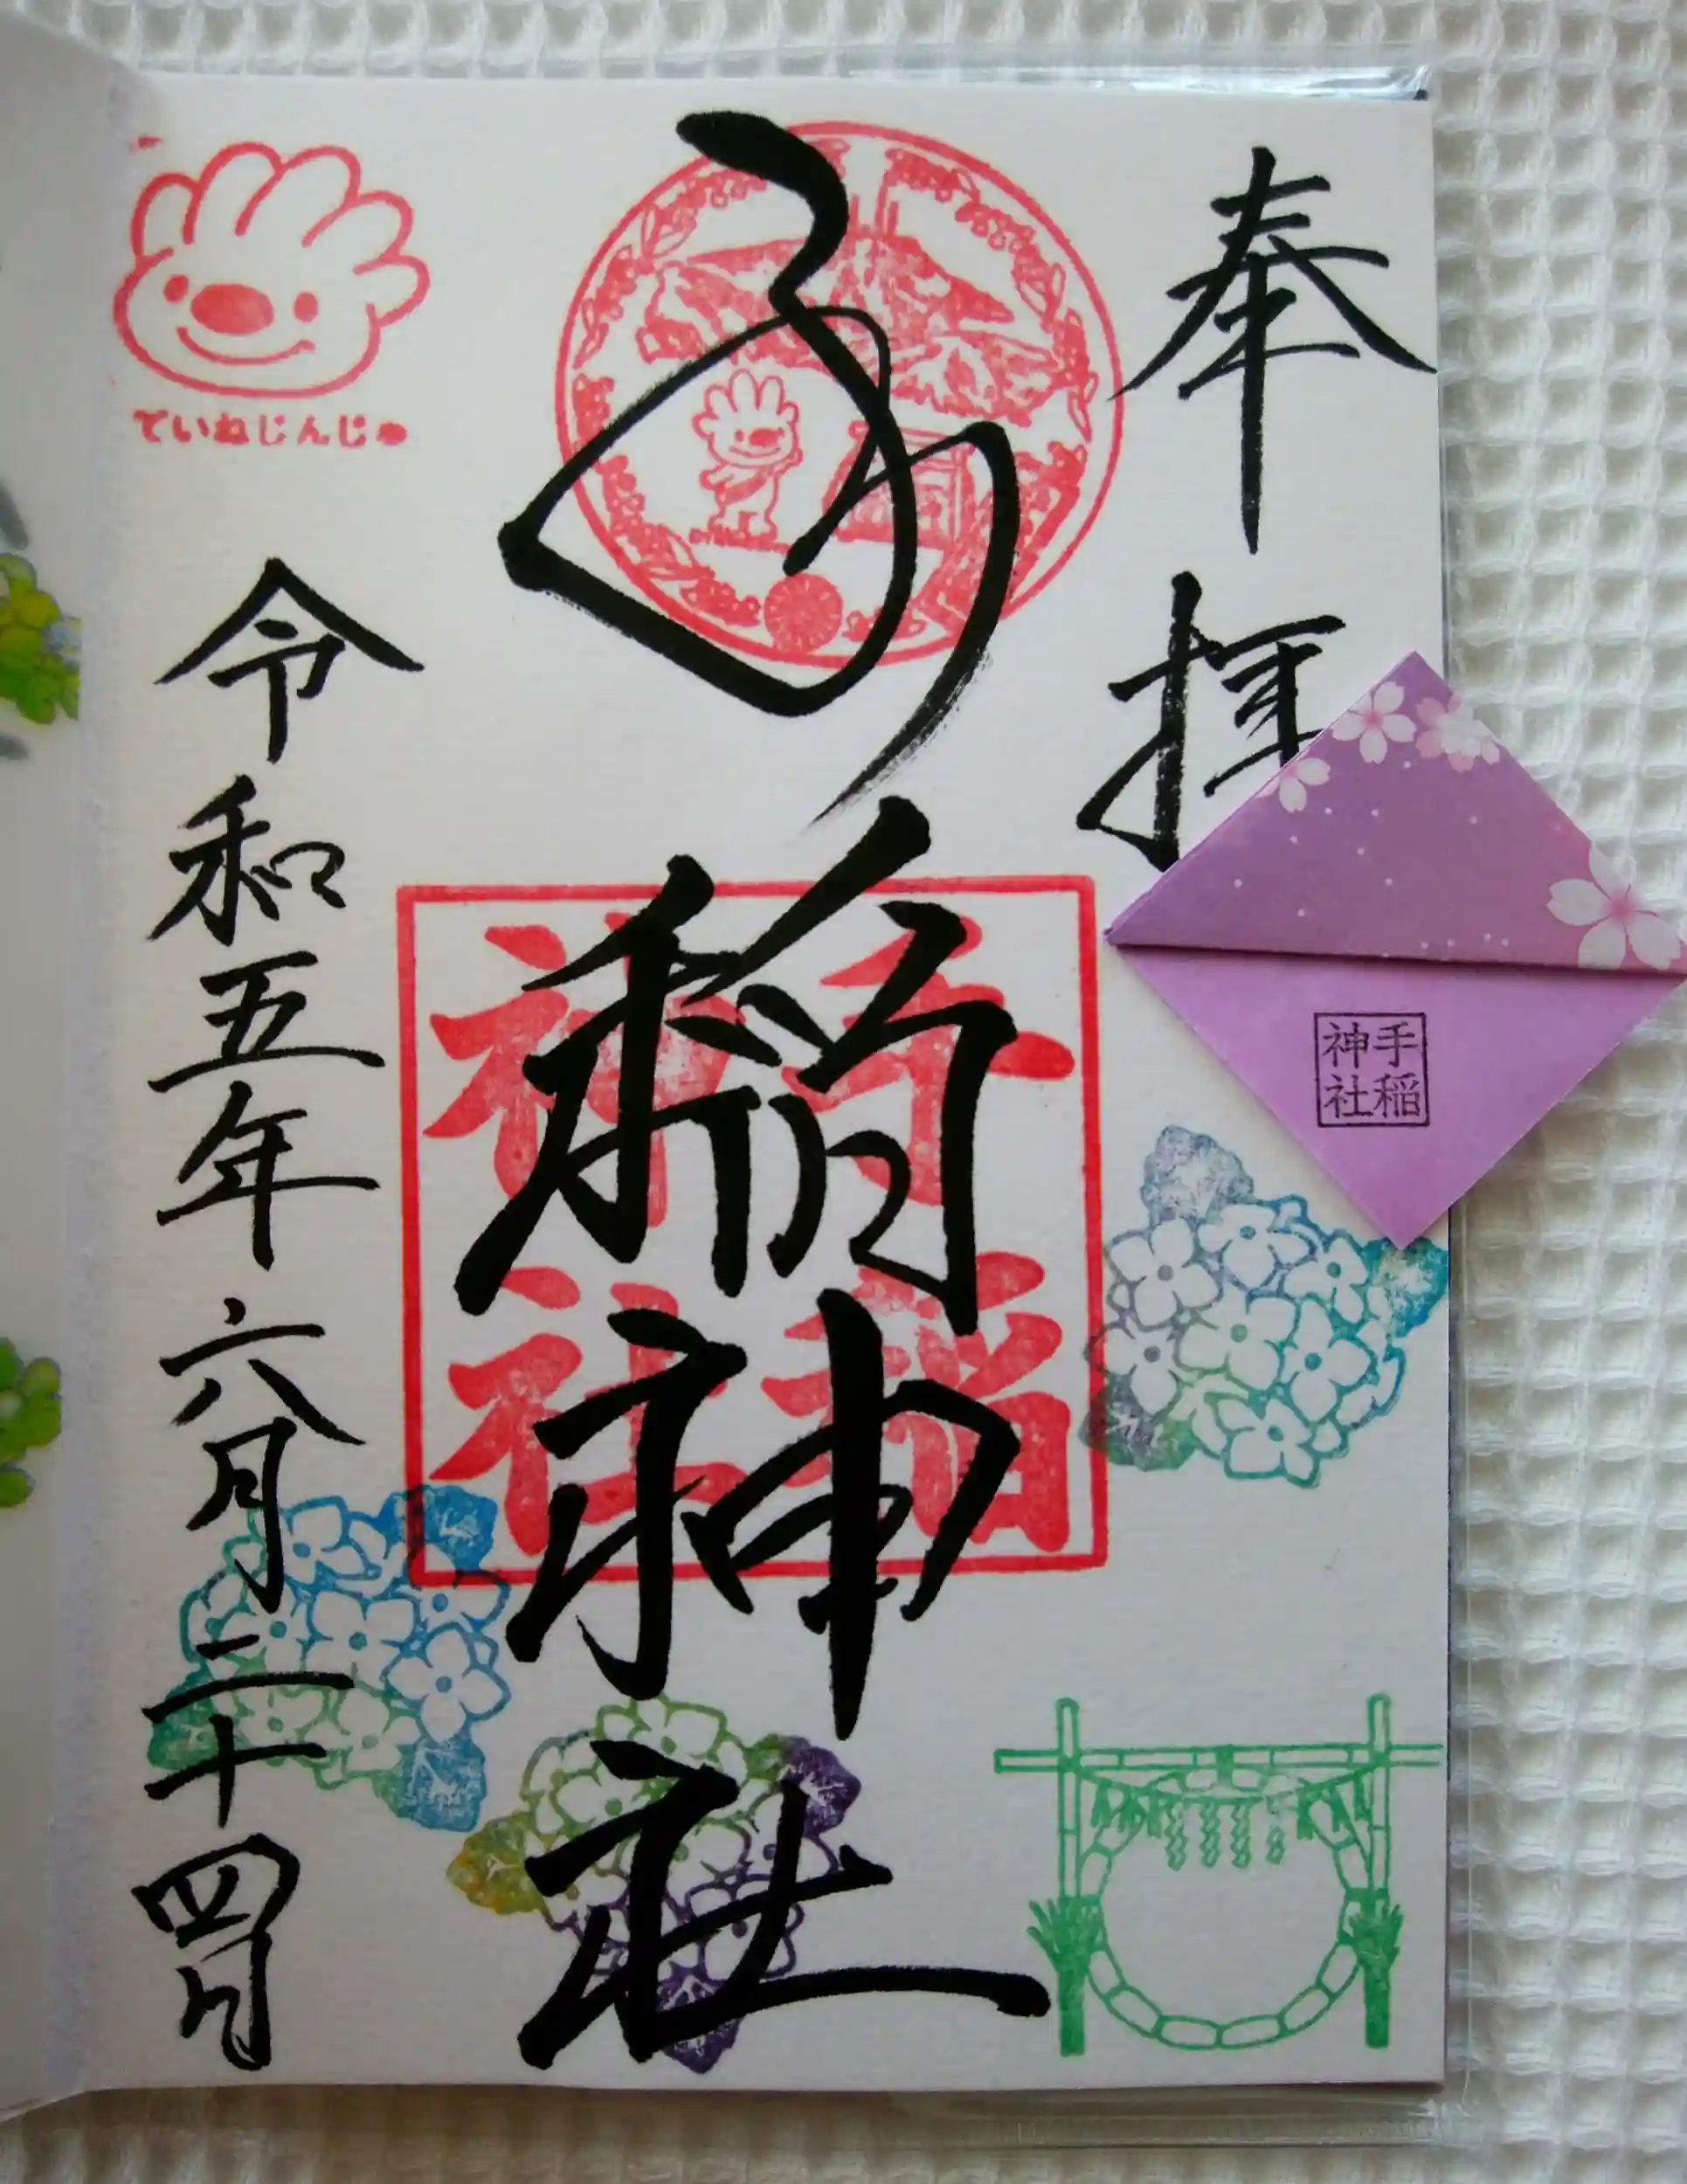 奉拝
手稲神社
手稲神社
ていねじんじゃ
令和五年六月二十四日
手稲神社